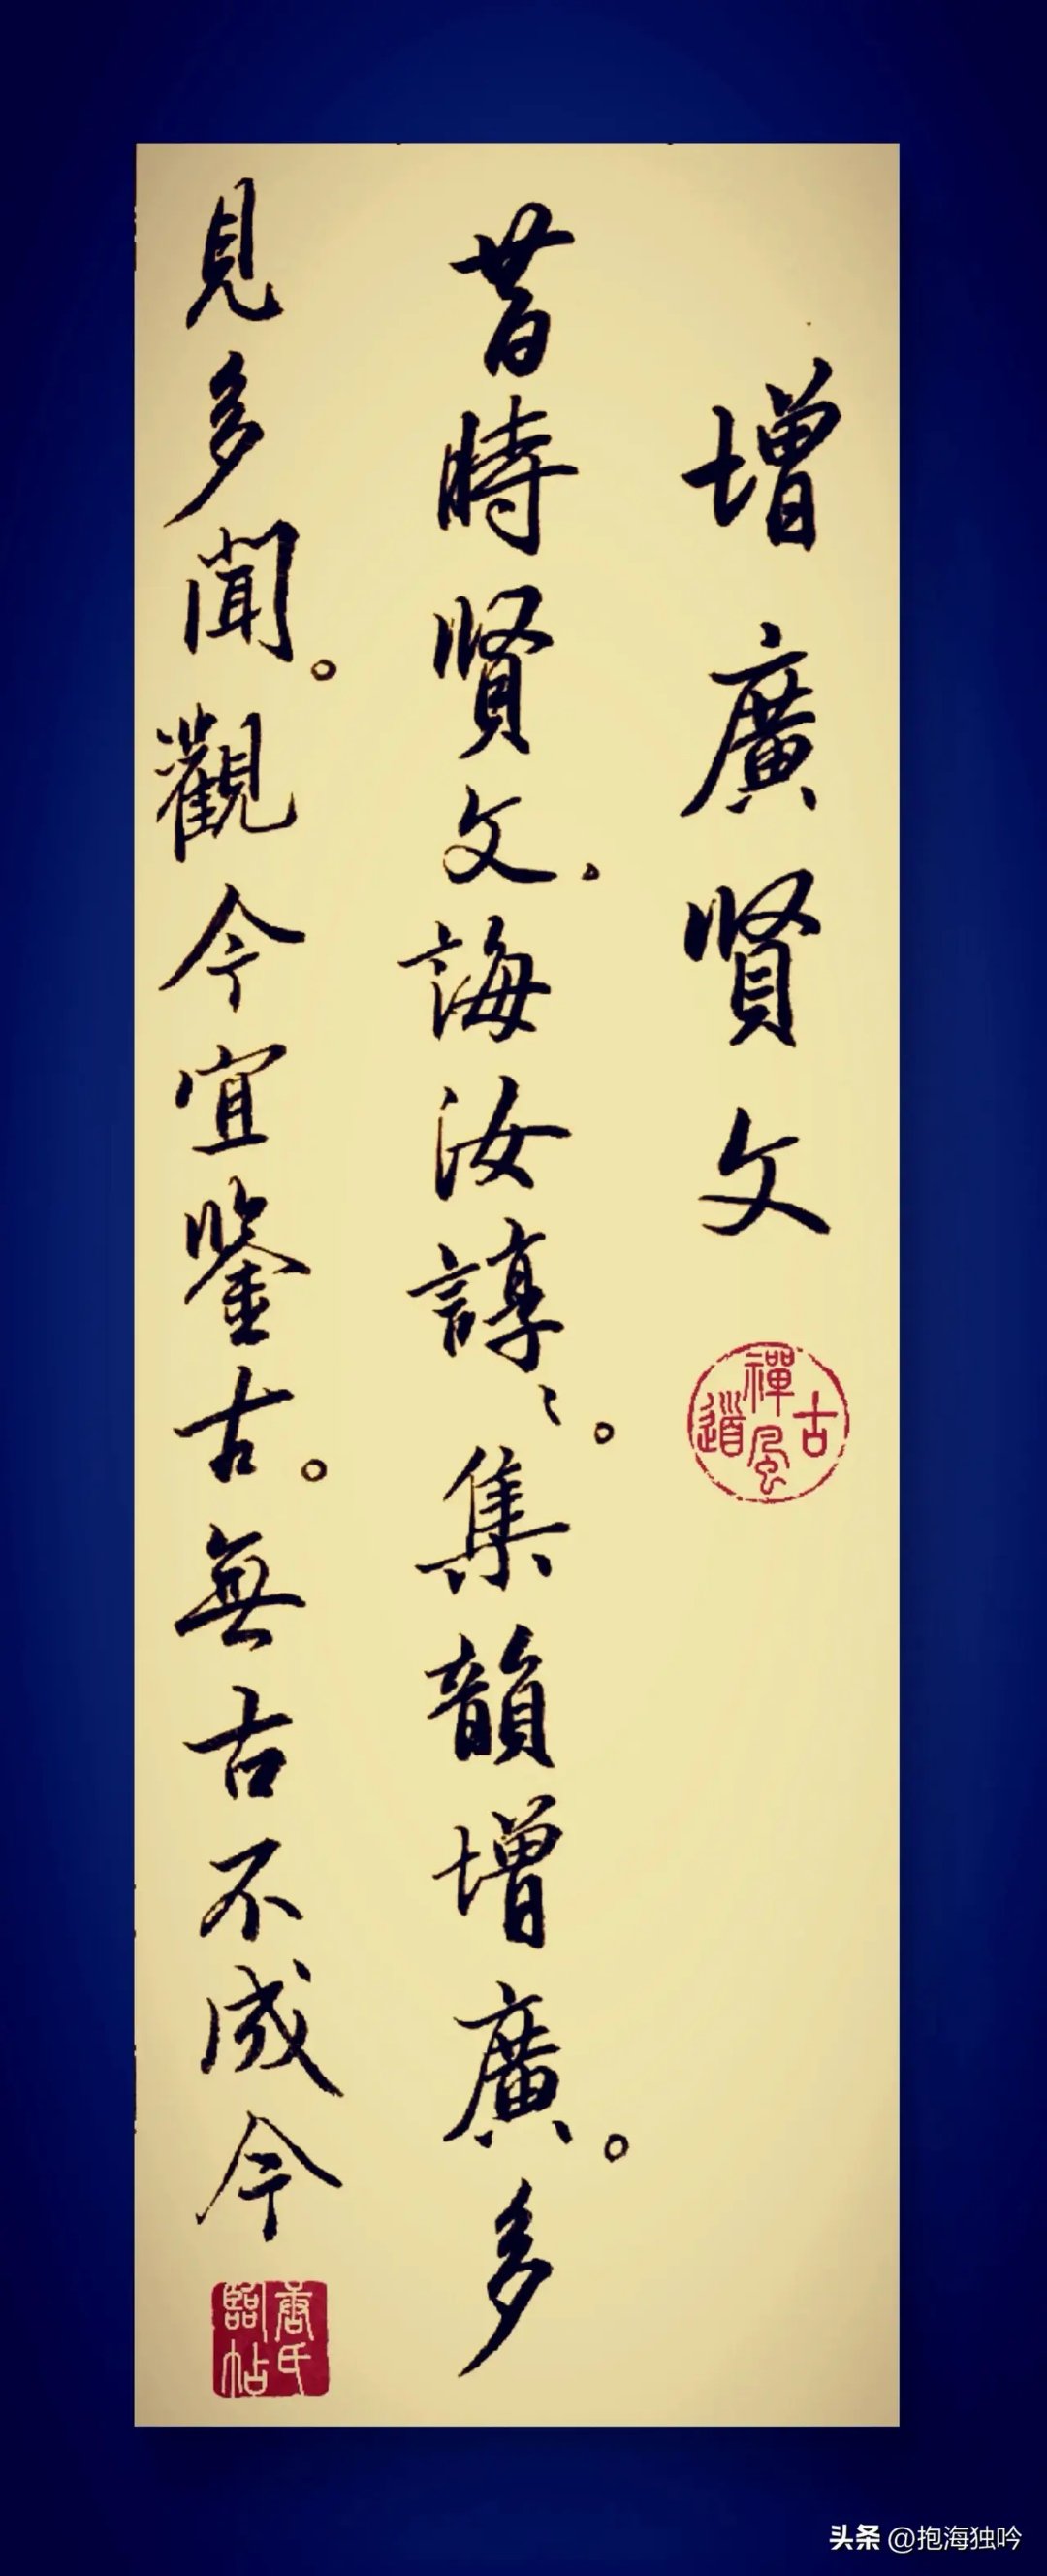 增廣賢文
古禪風道
昔時賢文.誨汝諄〻。集韻增廣。多
見多聞。觀今宜鑒古。無古不成今
唐氏臨帖
头条 @抱海独吟